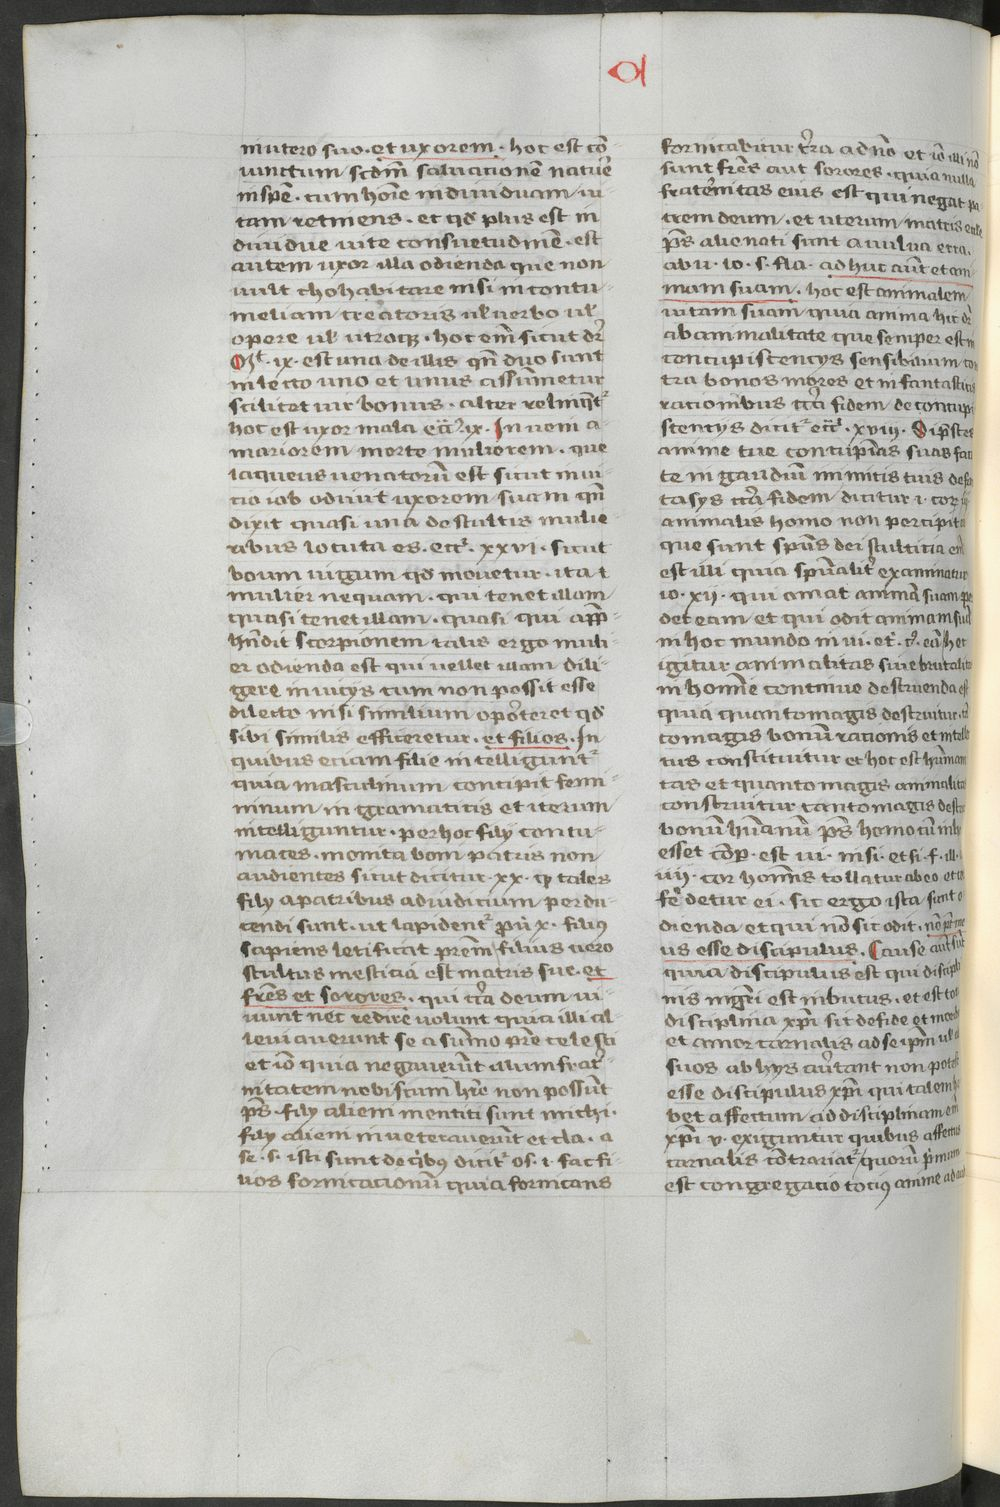 in utero suo . et uxorem . hoc est cō-
iunctum scdm̄ saluacionē natu͛e
in spē . cum hoīe indiuiduam ui-
tam retinens . et qd̄ plus est in
diuidue uite consuetudinē . est
autem uxor illa odienda que non
uult chohabitare nisi in contu-
meliam creatoris ul̄ uerbo ul̄
opere ul̄ utroqꝫ . hoc enī sicut dr̄
Mt . ix . est una de illis qn̄ duo sunt
in lecto uno et unus assūmetur
scilicet uir bonus . alter relinqt̄ᷣ
hoc est uxor mala ecc̄s . ix . Inueni a-
mariorem morte mulierem . que
laqueus uenatorū est sicut ini-
cio iob odiuit uxorem suam qn̄
dixit quasi una de stultis mulie
ribus locuta es . ecc̄i . xxvi . sicut
boum iugum qd̄ mouetur . ita ⁊
mulier nequam . qui tenet illam
quasi tenet illam . quasi qui app̄-
hn̄dit scorpionem . talis ergo muli-
er odienda est qui uellet illam dili-
gere in uicijs cum non possit esse
dilectio nisi similium oporteret qd̄
sibi similis efficeretur . et filios . In
quibus eciam filie intelligunt᷑
quia masculinum concipit femi-
ninum in gramaticis et iterum
intelliguntur . per hoc filij contu-
maces . monita boni patris non
audientes sicut dicitur . xx . ꝙ tales
filij a patribus ad iudicium perdu-
cendi sunt . ut lapident᷑ pū x . filius
sapiens letificat prēm filius uero
stultus mesticia est matris sue . et
frēs et sorores . qui ct̄ra deum ui-
uunt nec redire uolunt quia illi al-
leuiauerunt se a sūmo pr̄e celesti
et iō quia negauerūt illum frat͛-
nitatem nobiscum hr̄e non possūt
ps̄ . filij alieni mentiti sunt michi .
filij alieni inueterauerūt et cla . a
se . s . isti sunt de qībꝰ dicit᷑ os . i . fac fi-
lios fornicacionū quia fornicans
fornicabitur t͛ra a dn̄o et iō illi nō
sunt frēs aut sorores . quia nulla
frat͛nitas eius est qui negat pa-
trem deum . et uterum matris eccle
ps̄ alienati sunt a uulua etra .
ab u . io . s . fla . adhuc aūt et ani-
mam suam . hoc est animalem
uitam suam quia anima hic dr̄
ab animalitate que semper est in
concupiscencijs sensibilium con
tra bonos mores et in fantasticis
racionibus ct̄ra fidem de concupi
scencijs dicit᷑ ecc̄i . xviij . Si prestes
anime tue concupīas suas faci
te in gaudiū inimicis tuis de fan
tasijs ct̄ra fidem dicitur i . cor ij
animalis homo non percipit ea
que sunt sp̄us dei stultitia enī
est illi quia sp̄ualit͛ examinatur
io . xij . qui amat animā suam per
det eam et qui odit animam suā
in hoc mundo in ui . et͛ . c͛ . eā hec
igitur animalitas siue brutalitas
in homine continue destruenda est
quia quanto magis destruitur tan
to magis bonū racionis et intelle
ctus constituitur et hoc est humani
tas et quanto magis animalitas
construitur tanto magis destrui
bonū hūanū ps̄ homo cū in ho
esset cōp . est iu . nisi . et si . f . ill .
iiij . cor hominis tollatur ab eo et cor
fē detur ei . sic ergo ista sunt o-
dienda et qui nō sic odit . nō pt̄ me
us esse discipulus . Cause aūt sūt
quia discipulus est qui discipli
nis mgr̄i est inbutus . et est tota
disciplina xp̄i sic de fide et morib
et amor carnalis ad seip̄m uł ad
suos ab hijs au͛tant non potest
esse discipulus xp̄i qui talem ha
bet affectum ad disciplinam enī
xp̄i v . exiguntur quibus affectus
carnalis cōtrariat᷑ quorū p͛mum
est congregacio tociꝰ anime ad aud